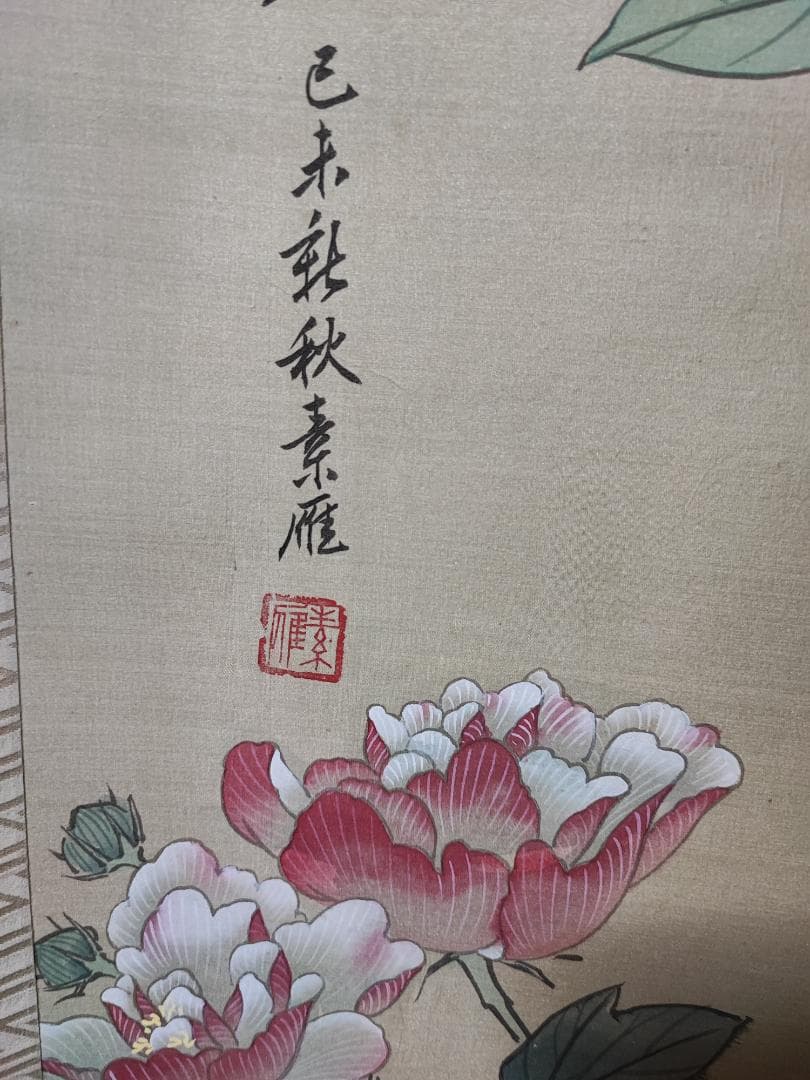 己未新秋素雁
素雁